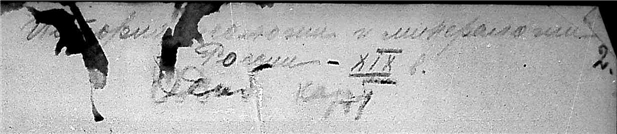 История геологии и минералогии
России - XIX в.
2.